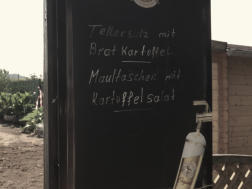 Tellersülz mit
Bratkartoffel
Maultaschen mit
Kartoffelsalat